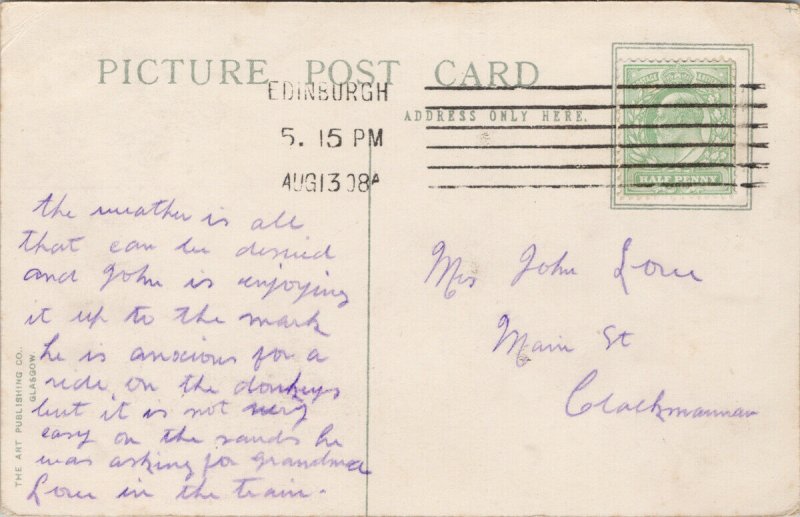 PICTURE POST CARD
EDINBURGH
5. 15 PM
AUG 13 08A
ADDRESS ONLY HERE.
HALF PENNY
the weather is all
that can be desired
and John is enjoying
it up to the mark
he is anxious for a
ride on the donkeys
but it is not very
easy on the sands he
was asking for grandma
Love in the train.
Mrs John Love
Main St
Clackmannan
THE ART PUBLISHING CO.,
GLASGOW.